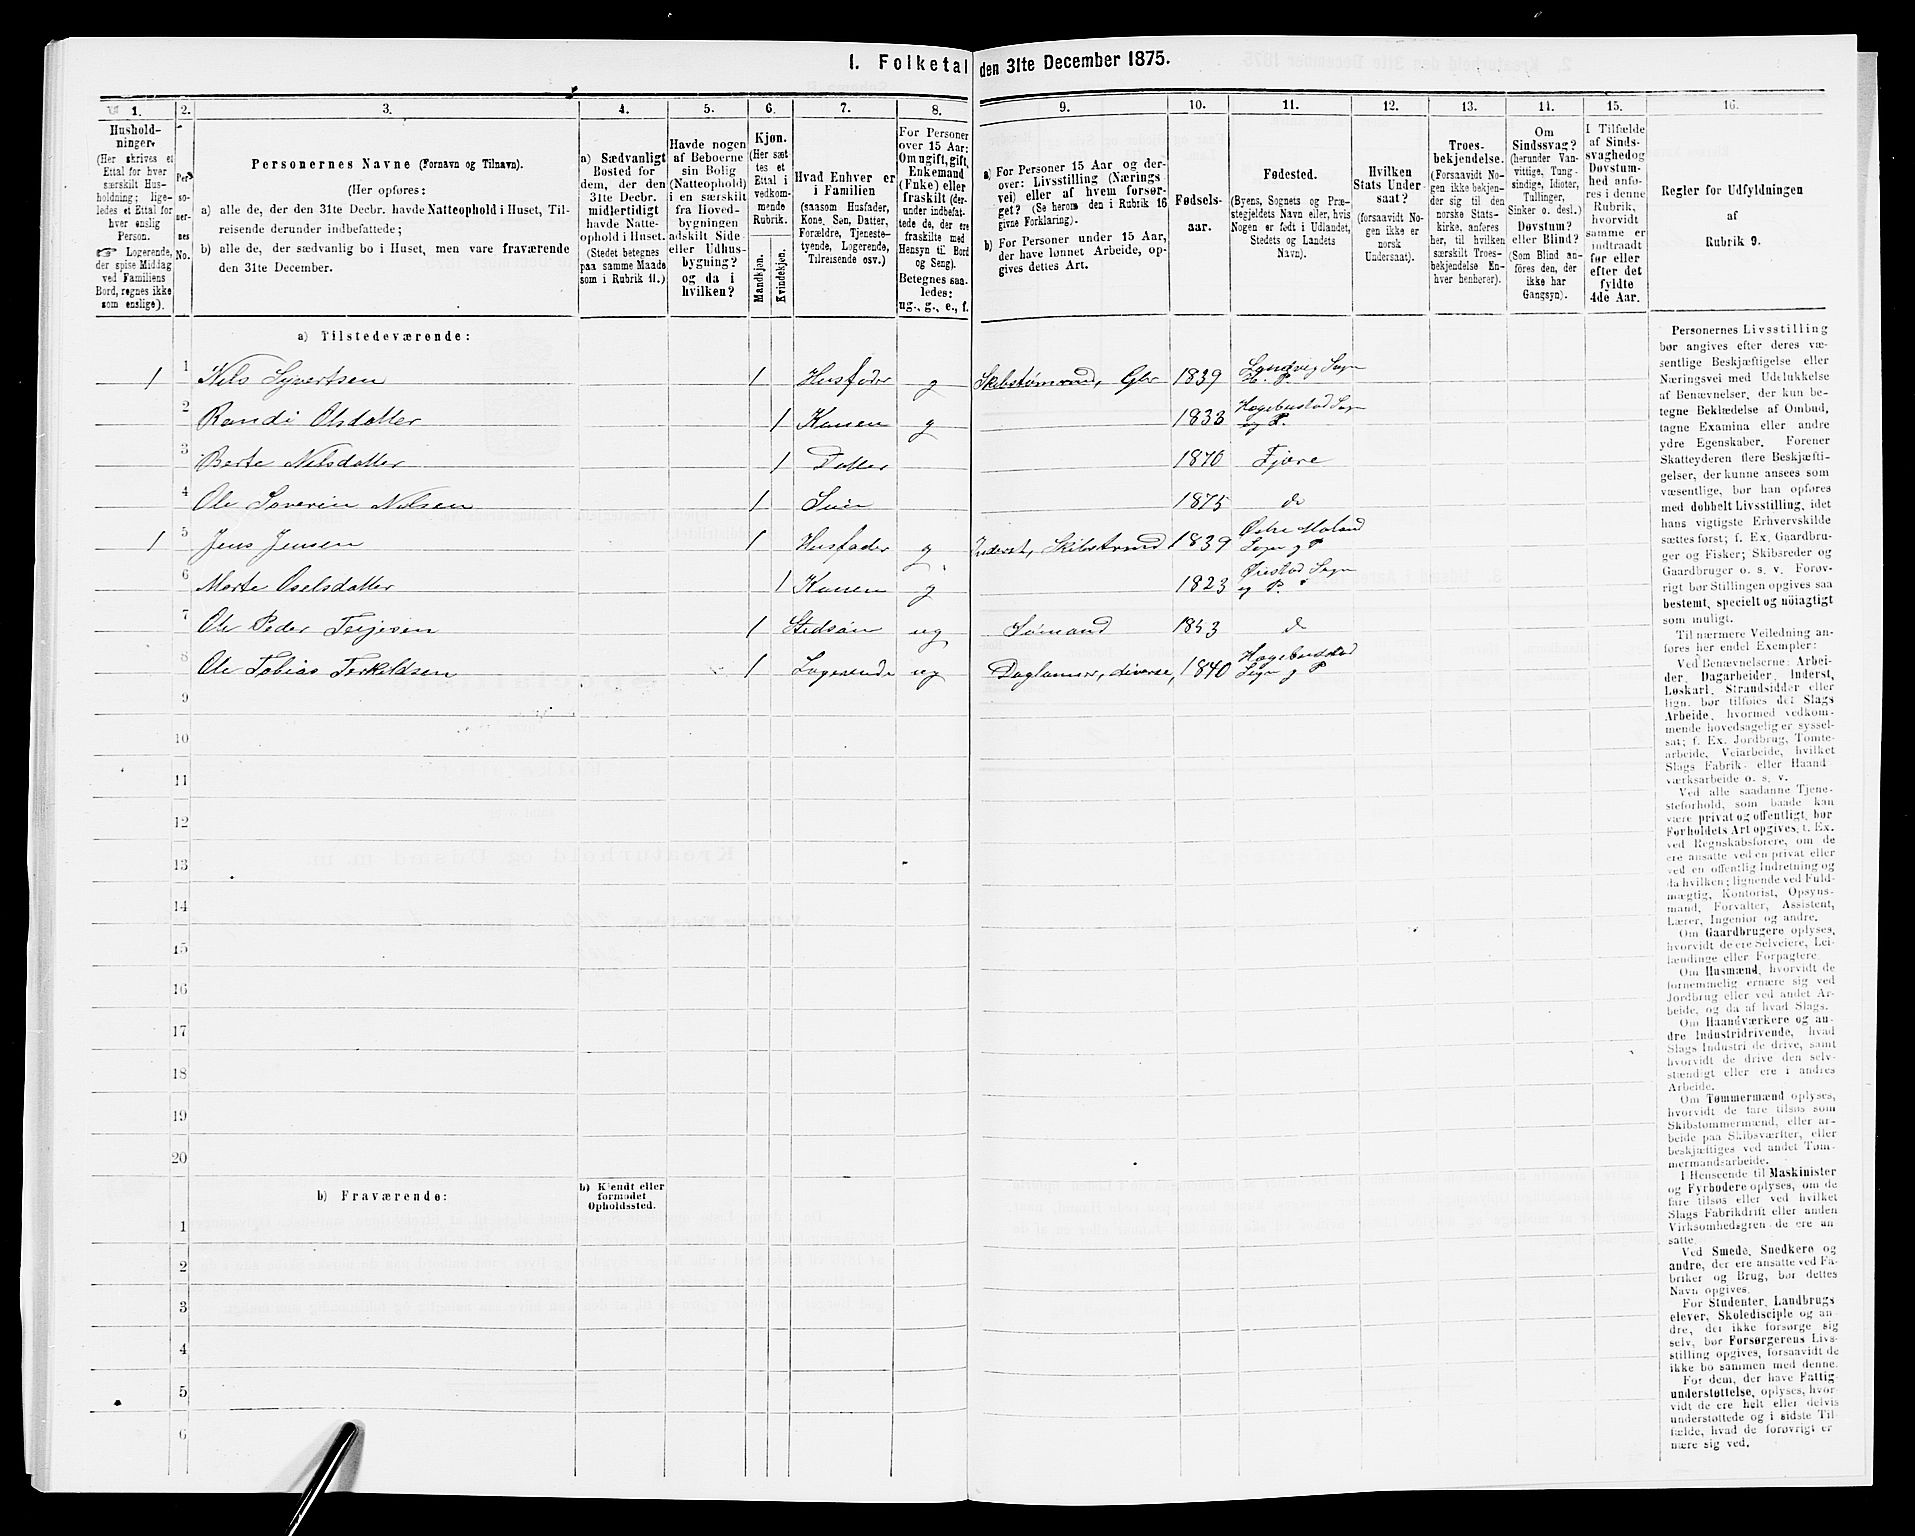 1. Folketal den 31te December 1875.
1. 2. 3. 4. 5. 6. 7. 8. 9. 10. 11. 12. 13. 14. 15. 16.
Hushold-
ninger.
(Her skrives et
Ettal for hver
særskilt Hus-
holdning; lige-
ledes et Ettal for
hver enslig
Person.
☞ Logerende,
der spise Middag
ved Familiens
Bord, regnes ikke
som enslige).
Per-
so-
ner-
nes
No.
Personernes Navne (Fornavn og Tilnavn).
(Her opføres:
a) alle de, der den 31te Decbr. havde Natteophold i Huset, Til-
reisende derunder indbefattede;
b) alle de, der sædvanlig bo i Huset, men vare fraværende
den 31te December.
a) Sædvanligt
Bosted for
dem, der den
31te Decbr.
midlertidigt
havde Natte-
ophold i Huset.
(Stedet betegnes
paa samme Maade
som i Rubrik 11.)
Havde nogen
af Beboerne
sin Bolig
(Natteophold)
i en særskilt
fra Hoved-
bygningen
adskilt Side-
eller Udhus-
bygning?
og da i
hvilken?
Kjøn.
(Her sæt-
tes et
Ettal i
vedkom-
mende
Rubrik.
Mandkjøn.
Kvindekjøn.
Hvad Enhver er
i Familien
(saasom Husfader,
Kone, Søn, Datter,
Forældre, Tjeneste-
tyende, Logerende,
Tilreisende osv.)
For Personer
over 15 Aar:
Om ugift, gift,
Enkemand
(Enke) eller
fraskilt (der-
under indbefat-
tede de, der ere
fraskilte med
Hensyn til Bord
og Seng).
Betegnes saa-
ledes:
ug., g., e., f.
a) For Personer 15 Aar og der-
over: Livsstilling (Nærings-
vei) eller af hvem forsør-
get? (Se herom den i Rubrik 16
givne Forklaring).
b) For Personer under 15 Aar,
der have lønnet Arbeide, op-
gives dettes Art.
Fødsels-
aar.
Fødested.
(Byens, Sognets og Præ-
stegjeldets Navn eller, hvis
Nogen er født i Udlandet,
Stedets og Landets
Navn).
Hvilken
Stats Under-
saat?
(forsaavidt No-
gen ikke er
norsk
Undersaat).
Troes-
bekjendelse.
(Forsaavidt No-
gen ikke bekjen-
der sig til den
norske Stats-
kirke, anføres
her, til hvilken
særskilt Troes-
bekjendelse En-
hver henhører).
Om
Sindssvag?
(herunder Van-
vittige, Tung-
sindige, Idioter,
Tullinger,
Sinker o. desl.)
Døvstum?
eller Blind?
(Som Blind an-
føres den, der
ikke har
Gangsyn).
I Tilfælde
af Sinds-
svaghed og
Døvstum-
hed anfø-
res i denne
Rubrik,
hvorvidt
samme er
indtraadt
før eller
efter det
fyldte
4de Aar.
Regler for Udfyldningen
af
Rubrik 9.
a) Tilstedeværende:
1 1 Nils Syvertsen 1 Husfader g Skibstømmd, 1839 Landvig Sogn H. P.
2 Randi Olsdatter 1 Konen g 1833 Hægebostad Sogn og P.
3 Berte Nilsdatter 1 Datter 1870 Fjære
4 Ole Severin Nilsen 1 Søn 1875 do
1 5 Jens Jensen 1 Husfader g Inderst, Skibstømmd 1839 Østre Moland Sogn og P
6 Marte Oselsdatter 1 Konen g 1823 Øiestad Sogn og P.
7 Ole Peder Terjesen 1 Stedsøn ug Sømand 1853 do
8 Ole Tobias Terkeldsen 1 Logerende ug Daglønner, diverse, 1840 Hægebostad Sogn og P
9
10
11
12
13
14
15
16
17
18
19
20
b) Fraværende:
b) Kjendt eller
formodet
Opholdssted.
1
2
3
4
5
6
Personernes Livsstilling
bør angives efter deres væ-
sentlige Beskjæftigelse eller
Næringsvei med Udelukkelse
af Benævnelser, der kun be-
tegne Beklædelse af Ombud,
tagne Examina eller andre
ydre Egenskaber. Forener
Skatteyderen flere Beskjæfti-
gelser, der kunne ansees som
væsentlige, bør han opføres
med dobbelt Livsstilling, idet
hans vigtigste Erhvervskilde
sættes først; f. Ex. Gaardbru-
ger og Fisker; Skibsreder og
Gaardbruger o. s. v. Forøv-
rigt bør Stillingen opgives saa
bestemt, specielt og nöiagtigt
som muligt.
Til nærmere Veiledning an-
føres her endel Exempler:
Ved Benævnelserne: Arbei-
der, Dagarbeider, Inderst,
Løskarl, Strandsidder eller
lign. bør tilføies det Slags
Arbeide, hvormed vedkom-
mende hovedsagelig er syssel-
sat; f. Ex. Jordbrug, Tomte-
arbeide, Veiarbeide, hvilket
Slags Fabrik- eller Haand-
værksarbeide o. s. v.
Ved alle saadanne Tjene-
steforhold, som baade kan
være privat og offentligt, bør
Forholdets Art opgives, t. Ex.
ved Regnskabsførere, om de
ere ansatte ved en privat eller
ved en offentlig Indretning og
da hvilken; lignende ved Fuld-
mægtig, Kontorist, Opsyns-
mand, Forvalter, Assistent,
Lærer, Ingeniør og andre.
Om Gaardbrugere oplyses,
hvorvidt de ere Selveiere, Lei-
lændinge eller Forpagtere.
Om Husmænd, hvorvidt de
fornemmelig ernære sig ved
Jordbrug eller ved andet Ar-
beide, og da af hvad Slags.
Om Haandværkere og an-
dre Industridrivende, hvad
Slags Industri de drive, samt
hvorvidt de drive den selv-
stændigt eller ere i andres
Arbeide.
Om Tømmermænd oplyses,
hvorvidt de fare tilsøs som
Skibstømmermænd, eller ar-
beide paa Skibsværfter, eller
beskjæftiges ved andet Tøm-
mermandsarbeide.
I Henseende til Maskinister
og Fyrbødere oplyses, om de
fare tilsøs eller ved hvilket
Slags Fabrikdrift eller anden
Virksomhedsgren de ere an-
satte.
Ved Smede, Snedkere og
andre, der ere ansatte ved Fa-
briker og Brug, bør dettes
Navn opgives.
For Studenter, Landbrugs-
elever, Skoledisciple og an-
dre, der ikke forsørge sig
selv, bør Forsørgerens Livs-
stilling opgives, forsaavidt de
ikke bo sammen med denne.
For dem, der have Fattig-
understøttelse, oplyses, hvor-
vidt de ere helt eller delvis
understøttede og i sidste Til-
fælde, hvad de forøvrigt er-
nære sig ved.